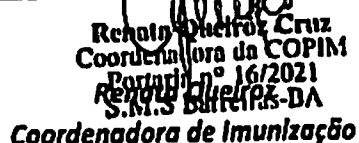 Renata Queiroz Cruz
Coordenadora da COPIM
Portaria nº 16/2021
Renata Queiroz
S.M.S Barreiras-BA
Coordenadora de Imunização